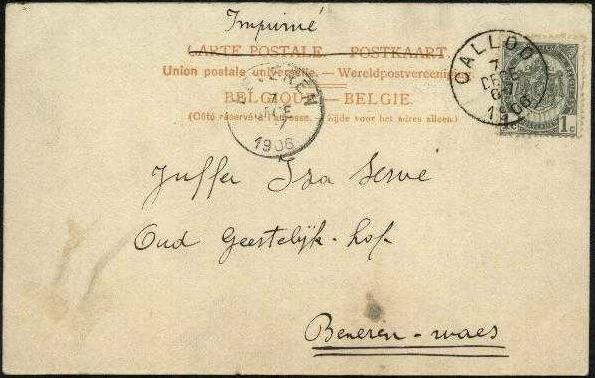 Imprimé
CARTE POSTALE. — POSTKAART.
Union postale universelle. — Wereldpostvereeniging
BELGIQUE — BELGIE.
(Côté réservé à l'adresse. — Zijde voor het adres alleen.)
CALLOO
7
DECE
6-7
1906
1c
7
DECE
1906
Juffer Iza Servé
Oud Geestelijk-hof.
Beveren-waes